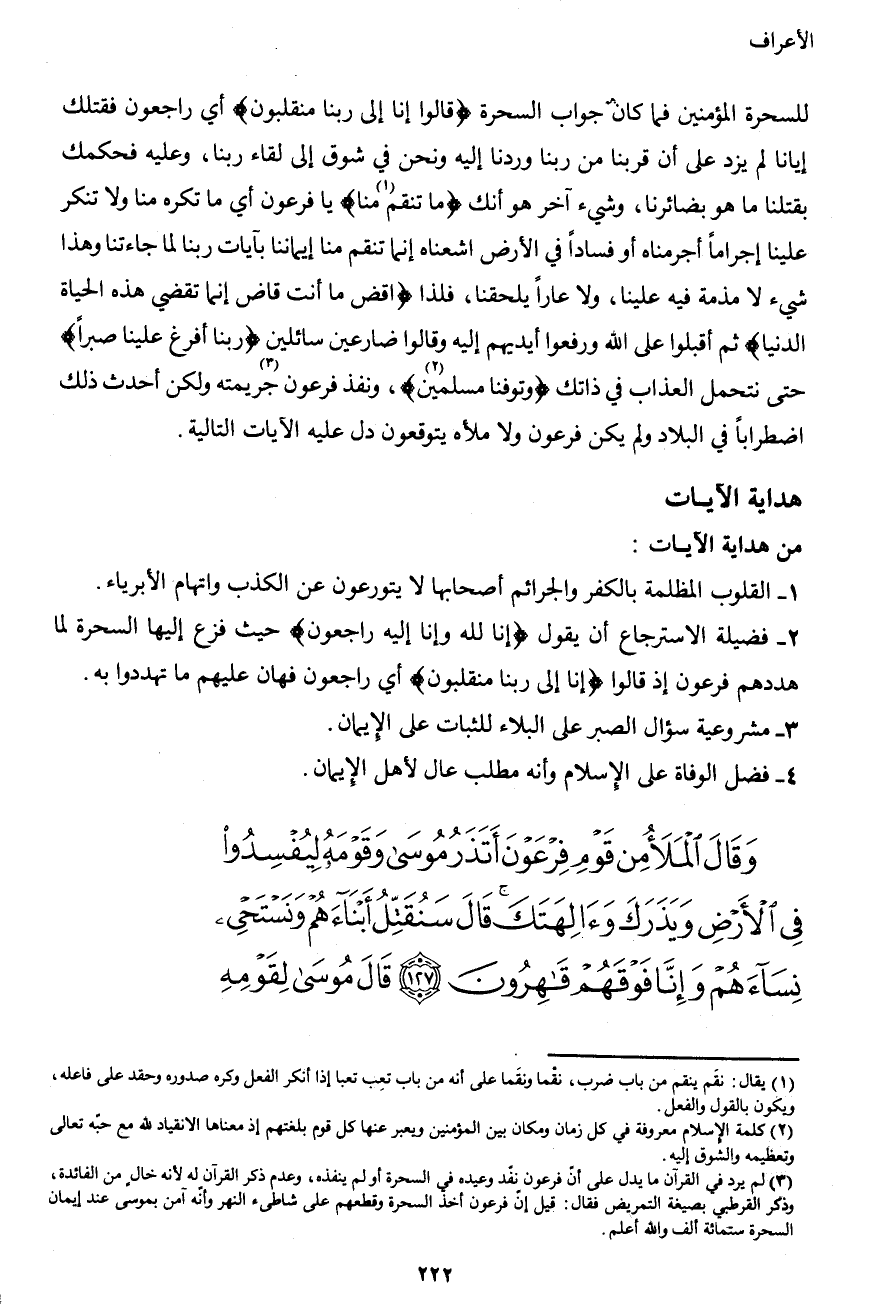 الأعراف
للسحرة المؤمنين فما كان جواب السحرة ﴿قالوا إنا إلى ربنا منقلبون﴾ أي راجعون فقتلك
إيانا لم يزد على أن قربنا من ربنا وردنا إليه ونحن في شوق إلى لقاء ربنا، وعليه فحكمك
بقتلنا ما هو بضائرنا، وشيء آخر هو أنك ﴿ما تنقم(١) منا﴾ يا فرعون أي ما تكره منا ولا تنكر
علينا إجراماً أجرمناه أو فساداً في الأرض اشعناه إنما تنقم منا إيماننا بآيات ربنا لما جاءتنا وهذا
شيء لا مذمة فيه علينا، ولا عاراً يلحقنا، فلذا ﴿اقض ما أنت قاض إنما تقضي هذه الحياة
الدنيا﴾ ثم أقبلوا على الله ورفعوا أيديهم إليه وقالوا ضارعين سائلين ﴿ربنا أفرغ علينا صبراً﴾
حتى نتحمل العذاب في ذاتك ﴿وتوفنا مسلمين(٢)﴾، ونفذ فرعون(٣) جريمته ولكن أحدث ذلك
اضطراباً في البلاد ولم يكن فرعون ولا ملأه يتوقعون دل عليه الآيات التالية.
هداية الآيـات
من هداية الآيـات :
١ـ القلوب المظلمة بالكفر والجرائم أصحابها لا يتورعون عن الكذب واتهام الأبرياء.
٢ـ فضيلة الاسترجاع أن يقول ﴿إنا لله وإنا إليه راجعون﴾ حيث فزع إليها السحرة لما
هددهم فرعون إذ قالوا ﴿إنا إلى ربنا منقلبون﴾ أي راجعون فهان عليهم ما تهددوا به.
٣ـ مشروعية سؤال الصبر على البلاء للثبات على الإيمان.
٤ـ فضل الوفاة على الإسلام وأنه مطلب عال لأهل الإيمان.
وَقَالَ ٱلْمَلَأُ مِن قَوْمِ فِرْعَوْنَ أَتَذَرُ مُوسَىٰ وَقَوْمَهُۥ لِيُفْسِدُوا۟
فِى ٱلْأَرْضِ وَيَذَرَكَ وَءَالِهَتَكَ ۚ قَالَ سَنُقَتِّلُ أَبْنَآءَهُمْ وَنَسْتَحْىِۦ
نِسَآءَهُمْ وَإِنَّا فَوْقَهُمْ قَـٰهِرُونَ ﴿١٢٧﴾ قَالَ مُوسَىٰ لِقَوْمِهِ
(١) يقال: نقَم ينقم من باب ضرب، نقْما ونقَما على أنه من باب تعِب تعبا إذا أنكر الفعل وكره صدوره وحقد على فاعله،
ويكون بالقول والفعل.
(٢) كلمة الإسلام معروفة في كل زمان ومكان بين المؤمنين ويعبر عنها كل قوم بلغتهم إذ معناها الانقياد لله مع حبّه تعالى
وتعظيمه والشوق إليه.
(٣) لم يرد في القرآن ما يدل على أنّ فرعون نفّد وعيده في السحرة أو لم ينفذه، وعدم ذكر القرآن له لأنه خالٍ من الفائدة،
وذكر القرطبي بصيغة التمريض فقال: قيل إنّ فرعون أخذ السحرة وقطعهم على شاطىء النهر وأنّه آمن بموسى عند إيمان
السحرة ستمائة ألف والله أعلم.
٢٢٢